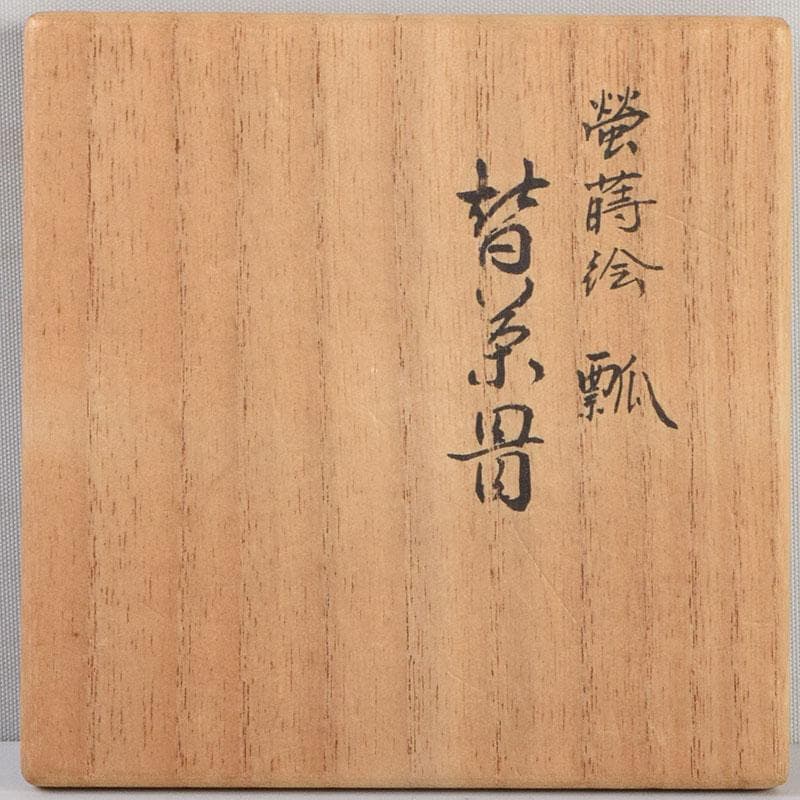 螢蒔絵 瓢
替茶器